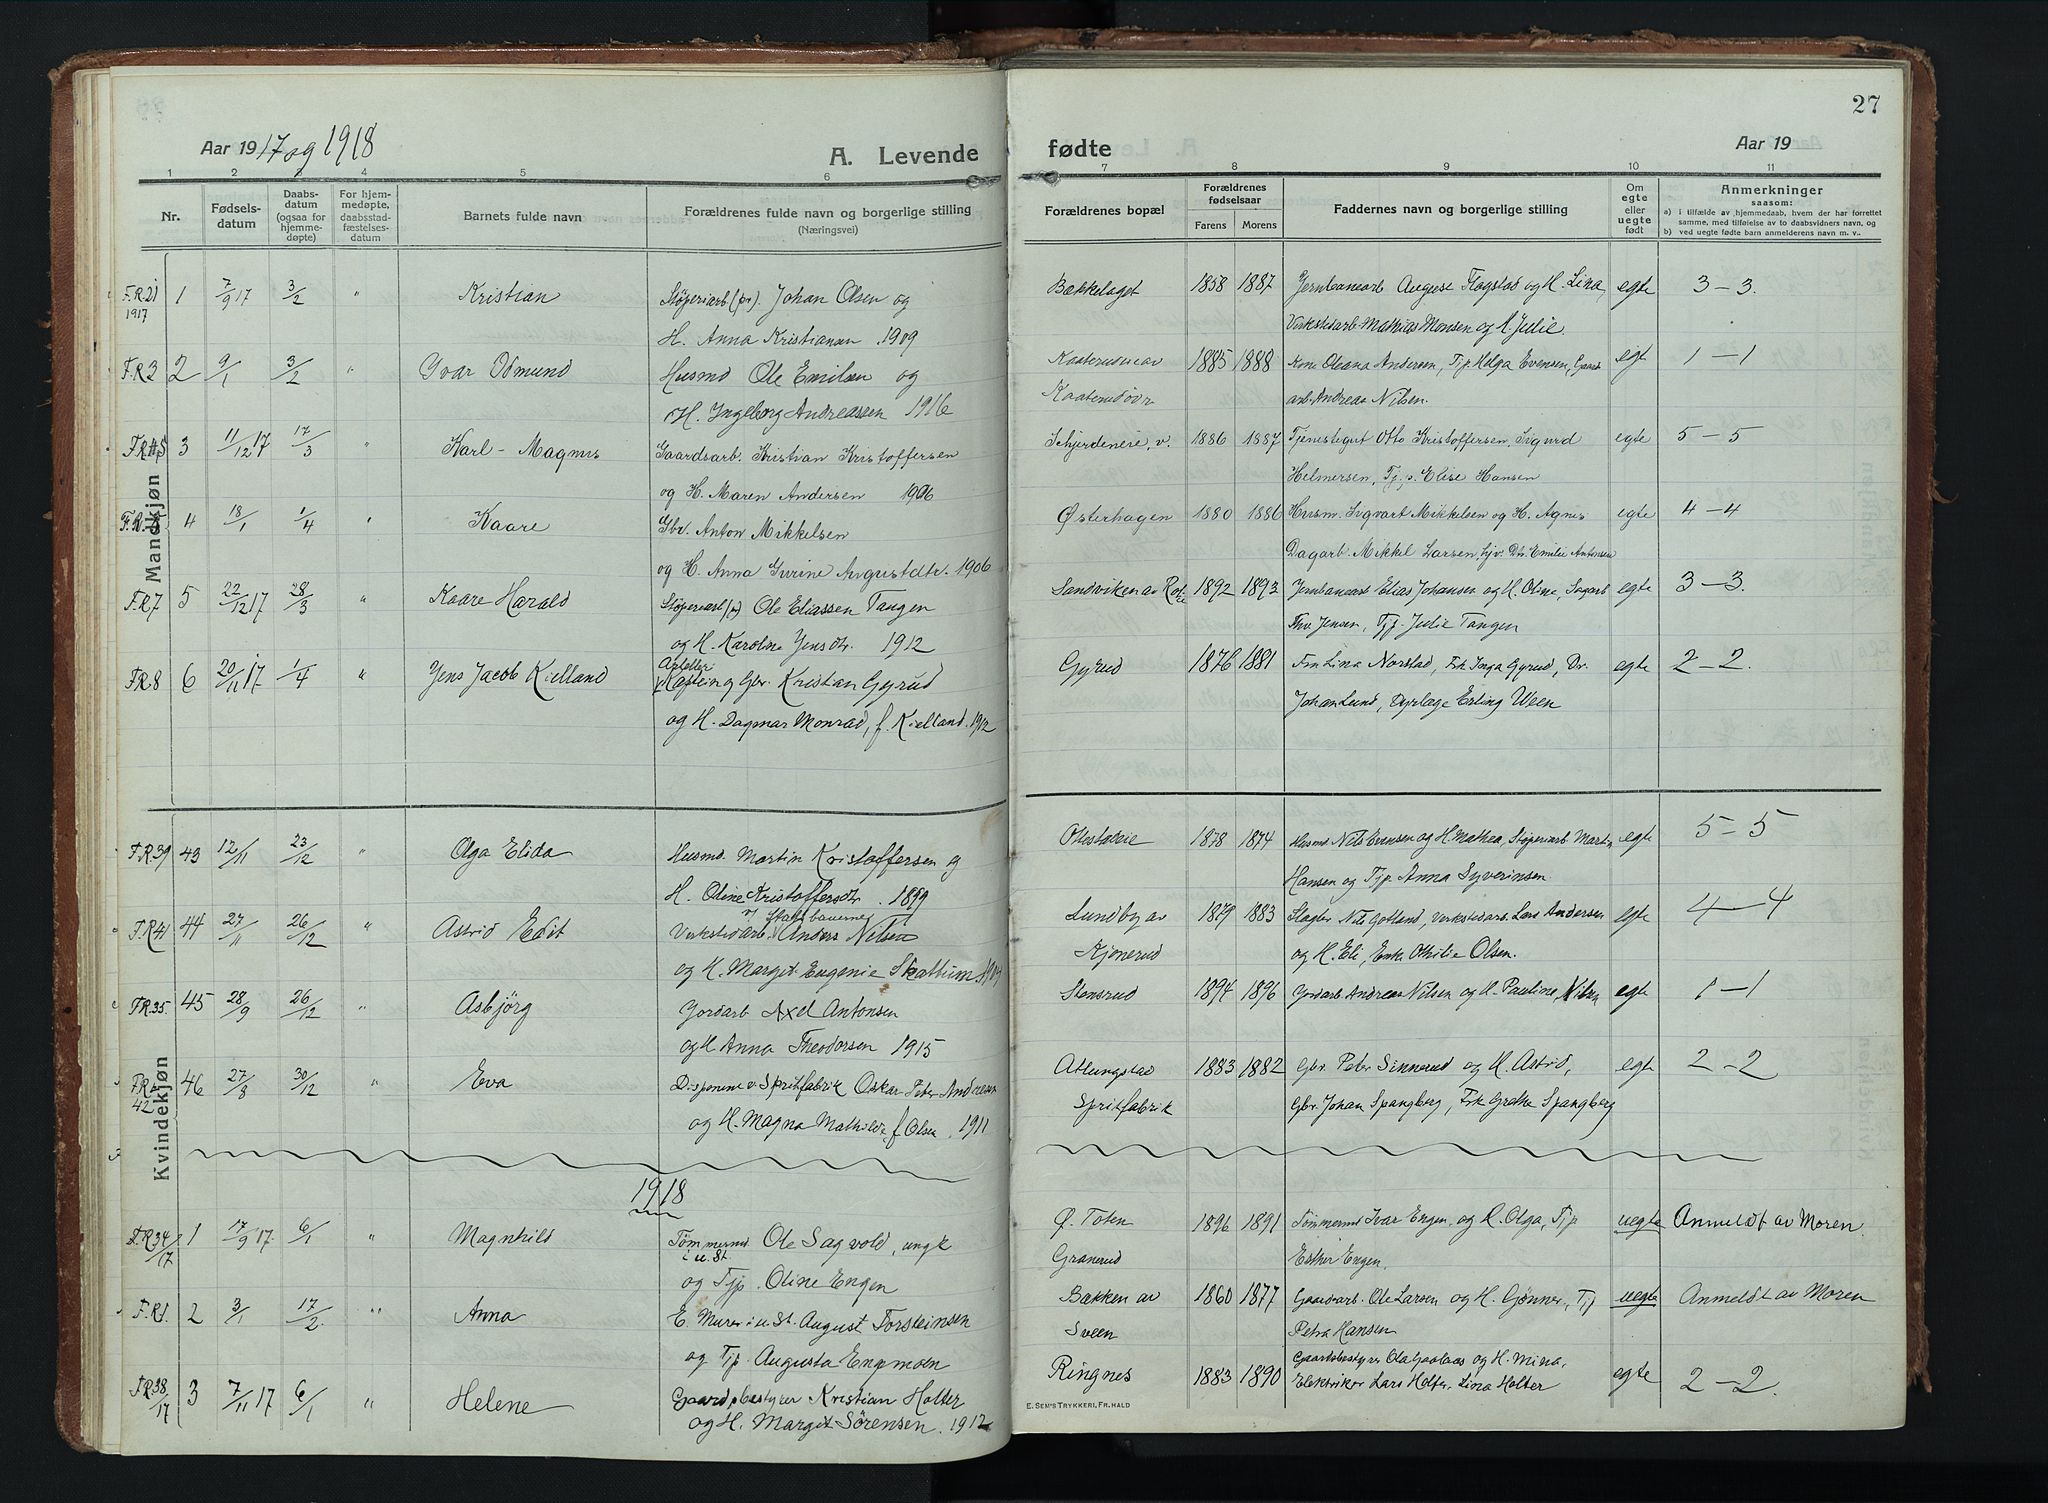 27
Aar 1917 og 1918
A. Levende
fødte
Aar 19
1 2 3 4 5 6 7 8 9 10 11
Nr.
Fødsels-
datum
Daabs-
datum
(ogsaa for
hjemme-
døpte)
For hjem-
medøpte,
daabsstad-
fæstelses-
datum
Barnets fulde navn
Forældrenes fulde navn og borgerlige stilling
(Næringsvei)
Forældrenes bopæl
Forældrenes
fødselsaar
Farens Morens
Faddernes navn og borgerlige stilling
Om
egte
eller
uegte
født
Anmerkninger
saasom:
a) i tilfælde av hjemmedaab, hvem der har forrettet
samme, med tilføielse av to daabsvidners navn, og
b) ved uegte fødte barn anmelderens navn m. v.
Mandkjøn
F.R.21 1 7/9 17 3/2 " Kristian Støperiarb (pr). Johan Olsen og Bækkelaget 1858 1887 Jernbanearb August Flagstad og H. Lina, egte 3 – 3.
1917 H. Anna Kristiansen 1909 Verkstedarb. Mathias Monsen og H. Julie.
F.R.3 2 9/1 3/2 " Ivar Odmund Husmd Ole Emilsen og 1885 1888 Kone Oleana Andersen, Tjp Helga Evensen, Gaards egte 1 – 1
H. Ingeborg Andreassen 1916 arb. Andreas Nilsen.
3 11/12 17 17/3 " Karl - Magnus Gaardsarb. Kristian Kristoffersen Schjerdeneie, v. 1886 1887 Tjenestegut Otto Kristoffersen, Sigurd egte 5 – 5
og H. Maren Andersen 1906 Helmersen, Tj.p. Elise Hansen
4 18/1 1/4 " Kaare Gbr. Anton Mikkelsen Østerhagen 1880 1886 Husm. Sigvart Mikkelsen og H. Agnes egte 4 – 4
og H. Anna Gurine Augustdtr. 1906 Dagarb. Mikkel Larsen, hjv. Dtr. Emilie Antonsen
F.R7 5 22/12 17 28/3 " Kaare Harald Støperiarb (pr) Ole Eliassen Tangen Sandviken av 1892 1893 Jernbanearb Elias Johansen og H. Oline, Sagarb egte 3 – 3.
og H. Karoline Jensdtr. 1912 Thv. Jensen, Tjp. Julie Tangen
F.R8 6 20/11 17 1/4 " Jens Jacob Kielland Kaptein og Gbr. Kristian Gyrud Gyrud 1876 1881 Fru Lina Norstad, Frk Inga Gyrud, Dr. egte 2 – 2.
og H. Dagmar Monrad, f. Kielland. 1912 Johan Lund, Dyrlæge Erling Ween
Kvindekjøn
F.R.39 43 12/11 23/12 " Olga Elida Husmd. Martin Kristoffersen og 1878 1874 Husmd Nils Evensen og H. Mathea, Støperiarb Martin egte 5 – 5
H. Oline Kristoffersdtr. 1899 Hansen og Tjp Anna Syverinsen.
F.R41 44 27/11 26/12 " Astrid Edit v. Statsbanerne Verkstedarb. Anders Nilsen Lundby av 1879 1883 Slagter Nils Gotland, Verkstedarb. Lars Andersen egte 4 – 4
og H. Margit Eugenie Skattum. Kjonerud og H. Eli, Enke Othilie Olsen.
F.R.35. 45 28/9 26/12 " Asbjörg Jordarb Axel Antonsen Stensrud 1894 1896 Jordarb Andreas Nilsen og H. Pauline, Nilsen egte 1 – 1
og H Anna Theodorsen 1915
42 46 27/8 30/12 " Eva Disponent v. Spritfabrik Oskar Peter Andresen Atlungstad 1883 1882 Gbr. Peter Sinnerud og H. Astrid, egte 2 – 2
og H. Magna Mathilde, f. Olsen. 1911 Spritfabrik Gbr. Johan Spangberg, Frk Grethe Spangberg
1918
F.R34/17 1 17/9 17. 6/1 " Magnhild Tømmermd Ole Sagvold, ungk Ø. Toten 1896 1891 Tømmermd Ivar Engen, og H. Olga, Tjp uegte Anmeldt av Moren.
i u. St. og Tjp. Oline Engen Granerud Esther Engen.
F.R1. 2 3/1 17/2. " Anna E. Murer i u St. August Torsteinsen Bækken av 1860 1877 Gaardsarb. Ole Larsen og H. Gønner, Tj uegte Anmeldt av Moren
og Tjp. Augusta Engmoen Sveen Petra Hansen
F.R38/17 3 7/11 17 6/1 " Helene Gaardsbestyrer Kristian Holter Ringnes 1883 1890 Gaardsbestyrer og H. Mina, egte 2 – 2.
og H. Margit Sørensen. 1912 Elektriker Lars Holter, Lina Holter
E. SEM'S TRYKKERI, FR.HALD